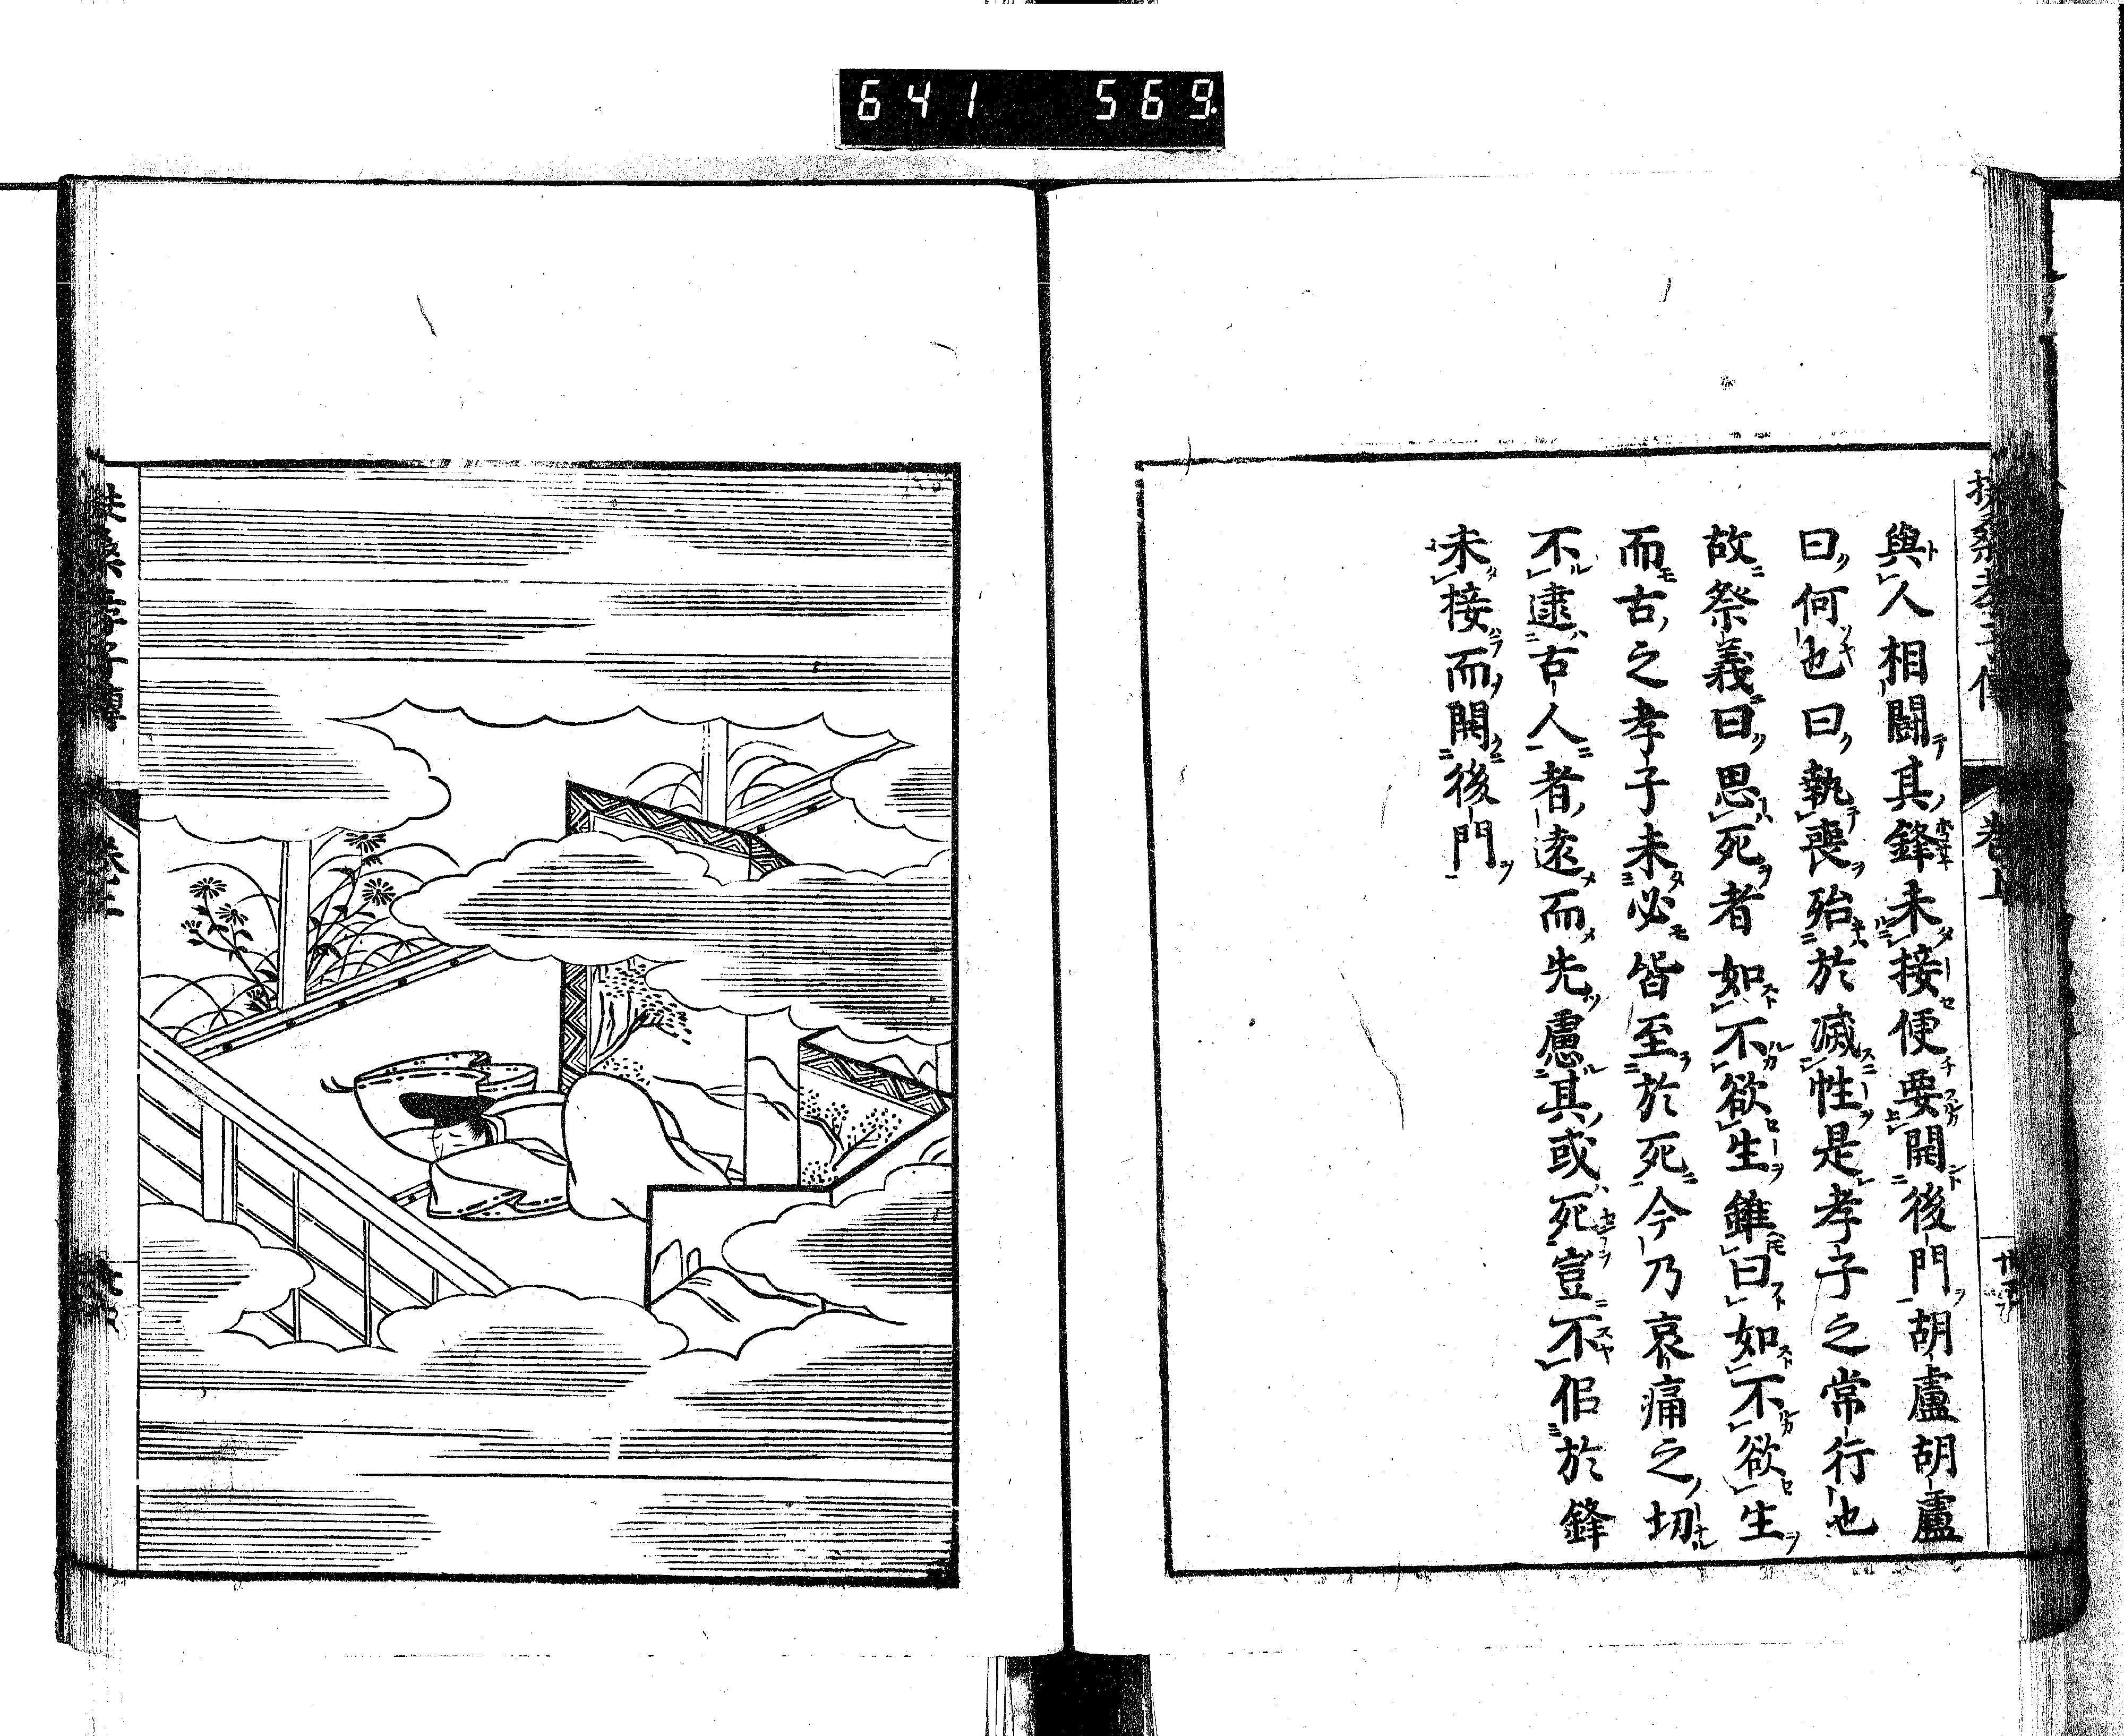 641 569.
與人相鬪其鋒未接便要開後門胡盧胡盧
曰何也曰執喪殆於滅性是孝子之常行也
故祭義曰思死者如不欲生雖曰如不欲生
而古之孝子未必皆至於死今乃哀痛之切
不逮古人者遠而先慮其或死豈不侶於鋒
未接而開後門
扶桑孝子傳